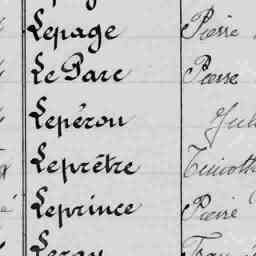 Lepage Pierre
Le Parc Pierre
Lepérou
Leprêtre
Leprince Pierre
Leray